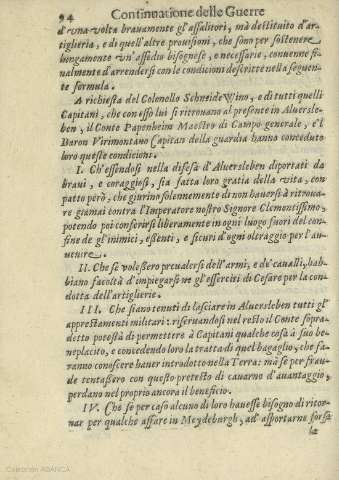 94 Continuatione delle Guerre
d'vna volta brauamente gl'assalitori, mà destituito d'ar-
tiglieria, e di quell'altre prouisioni, che sono per sostenere
lungamente vn'assedio bisognese, e necessarie, conuenne fi-
nalmente d'arrendersi con le conditioni descritte nella seguen-
te formula.
A richiesta del Colonello Schneide Wino, e di tutti quelli
Capitani, che con esso lui si ritrouano al presente in Aluersle-
ben, il Conte Papenheim Maestro di Campo generale, e'l
Baron Virimontano Capitan della guardia hanno conceduto
loro queste condicioni.
I. Ch'essendosi nella difesa d'Aluersleben diportati da
braui, e coraggiosi, sia fatta loro gratia della vita, con
patto però, che giurino solennemente di non hauersi à ritroua-
re giamai contra l'Imperatore nostro Signore Clementissimo,
potendo poi conferirsi liberamente in ogni luogo fuori del con-
fine de gl'inimici, essenti, e sicuri d'ogni oltraggio per l'au-
uenire.
II. Che se volessero preualersi dell'armi, e de' caualli, hab-
biano facoltà d'impiegarsi ne gl'esserciti di Cesare per la con-
dotta dell'artiglierie.
III. Che siano tenuti di lasciare in Aluersleben tutti gl'
apprestamenti militari: riseruandosi nel resto il Conte sopra-
detto potestà di permettere à Capitani qualche cosa à suo be-
neplacito, e concedendo loro la tratta di quel bagaglio, che fa-
ranno conoscere hauer introdotto nella Terra: mà se per frau-
de tentassero con questo pretesto di cauarne d'auantaggio,
perdano nel proprio ancora il beneficio.
IV. Che se per caso alcuno di loro hauesse bisogno di ritor-
nar per qualche affare in Meydeburgh, ad asportarne forsa
la
Colección ABANCA